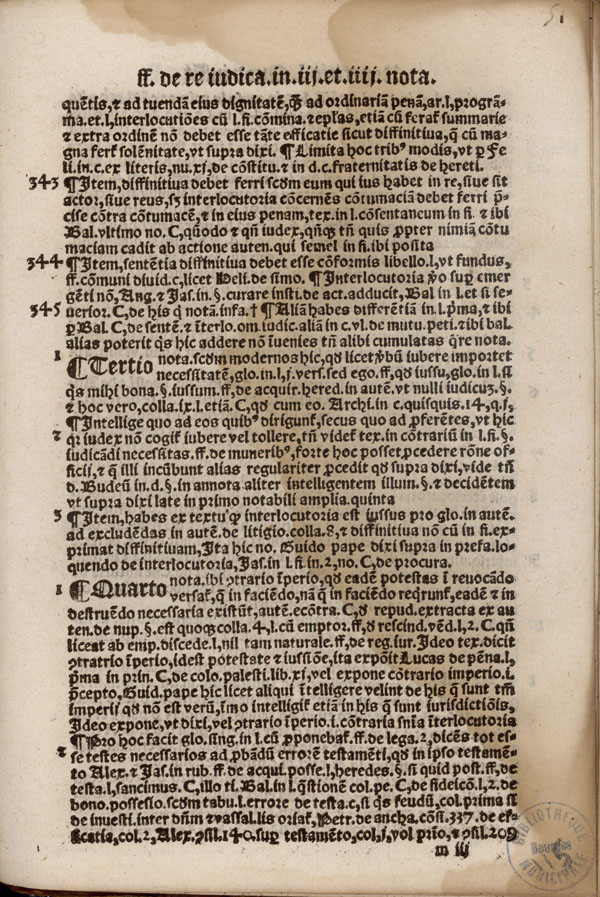 51
ff. de re iudica.in.iij.et.iiij. nota.
quẽtis,⁊ ad tuendã eius dignitatẽ,ꝙ̃ ad ordinariã penã,ar.l,progrã-
ma.et.l,interlocutiões cũ l.fi.cõmina.⁊ eplas,etiã cũ feraẗ summarie
⁊ extra ordinẽ nõ debet esse tãte efficatie sicut diffinitiua,q̃ cũ ma-
gna ferẗ solẽnitate,vt supra dixi. ¶Limita hoc trib⁹ modis,vt ꝑ Fe
li.in.c.ex literis,nu.xj,de cõstitu.⁊ in d.c.fraternitatis de hereti.
343 ¶Item,diffinitiua debet ferri scd̃m eum qui ius habet in re,siue sit
actor,siue reus,sꝫ interlocutoria cõcernẽs cõtumaciã debet ferri p̃-
cise cõtra cõtumacẽ,⁊ in eius penam,tex.in l.cõsentaneum in fi.⁊ ibi
Bal.vltimo no.C,quõdo ⁊ qñ iudex,qñqꝫ tñ quis ꝓpter nimiã cõtu
maciam cadit ab actione auten.qui semel in fi.ibi posita
344 ¶Item,sentẽtia diffinitiua debet esse cõformis libello.l,vt fundus,
ff.cõmuni diuid.c,licet Heli.de simo. ¶Interlocutoria ṽo suꝑ emer
gẽti nõ,Ang.⁊ Jas.in.§.curare insti.de act.adducit,Bal in l.et si se-
345 uerior.C,de his q̃ notã.infa.† ¶Aliã habes differẽtiã in l.p̃ma,⁊ ibi
ꝑ Bal.C,de sentẽ.⁊ ĩterlo.om.iudic.aliã in c.vl.de mutu.peti.⁊ ibi bal.
alias poterit q̃s hic addere nõ ĩuenies tñ alibi cumulatas q̃re nota.
1 ¶Tertio nota.scd̃m modernos hic,qd̃ licet ṽbũ iubere importet
necessitatẽ,glo.in l,j,vers.sed ego.ff,qd̃ iussu,glo.in l.si
q̃s mihi bona.§.iussum.ff,de acquir.hered.in autẽ.vt nulli iudicuꝫ.§.
⁊ hoc vero,colla.ix.l.etiã.C,qd̃ cum eo. Archi.in c.quisquis.14,q.j,
¶Intellige quo ad eos quib⁹ dirigunẗ,secus quo ad ꝓferẽtes,vt hic
2 qr iudex nõ cogiẗ iubere vel tollere,tñ videẗ tex.in cõtrariũ in l.fi.§.
iudicãdi necessitas.ff.de munerib⁹,forte hoc posset ꝓcedere rõne of-
ficij,⁊ q̃ illi incũbunt alias regulariter ꝓcedit qd̃ supra dixi,vide tñ
d.Budeũ in.d.§.in annota aliter intelligentem illum.§.⁊ decidẽtem
vt supra dixi late in primo notabili amplia.quinta
3 ¶Item,habes ex textu ꝙ interlocutoria est iussus pro glo.in autẽ.
ad excludẽdas in autẽ.de litigio.colla.8,⁊ diffinitiua nõ cũ in fi.ex-
primat diffinitiuam,Ita hic no. Guido pape dixi supra in prefa.lo-
quendo de interlocutoria,Jas.in l.fi.in.2,no.C,de procura.
1 ¶Quarto nota.ibi ↄtrario ĩperio,qd̃ eadẽ potestas ĩ reuocãdo
versaẗ,q̃ in faciẽdo,nã q̃ in faciẽdo req̃runẗ,eadẽ ⁊ in
destruẽdo necessaria existũt,autẽ.ecõtra.C,qd̃ repud.extracta ex au
ten.de nup.§.est quoqꝫ colla.4,l.cũ emptor.ff,d̃ rescind.vẽd.l,2.C.qñ
liceat ab emp.discede.l,nil tam naturale.ff,de reg.iur.Ideo tex.dicit
ↄtratrio ĩperio,idest potestate ⁊ iussiõe,ita expõit Lucas de pẽna.l,
p̃ma in prin.C,de colo.palesti.lib.xj,vel expone cõtrario imperio.i.
p̃cepto,Guid.pape hic licet aliqui ĩtelligere velint de his q̃ sunt tm̃
imperij qd̃ nõ est verũ,ĩmo intelligiẗ etiã in his q̃ sunt iurisdictiõis,
Ideo expone,vt dixi,vel ↄtrario ĩperio.i.cõtraria sñia ĩterlocutoria
¶Pro hoc facit glo.sing.in l.cũ ꝓponebaẗ.ff.de lega.2,dicẽs tot es-
2 se testes necessarios ad ꝓbãdũ errorẽ testamẽti,qd̃ in ipso testamẽ-
to Alex.⁊ Jas.in rub.ff.de acqui.posse.l,heredes.§.si quid post.ff,de
testa.l,sancimus.C,illo ti.Bal.in l.q̃stionẽ col.pe.C,de fideicõ.l,2.de
bono.possesio.scd̃m tabu.l.errore de testa.c,si q̃s feudũ,col.prima si
de inuesti.inter dñm ⁊ vasal.lis oriaẗ,Petr.de ancha.cõsi.337.de ef-
ficatia,col.2,Alex.ↄsil.140.suꝑ testamẽto,col,j,vol p̃rio,⁊ ↄsil.209
m iij
BIBLIOTHEQUE
Bourges
MUNICIPALE